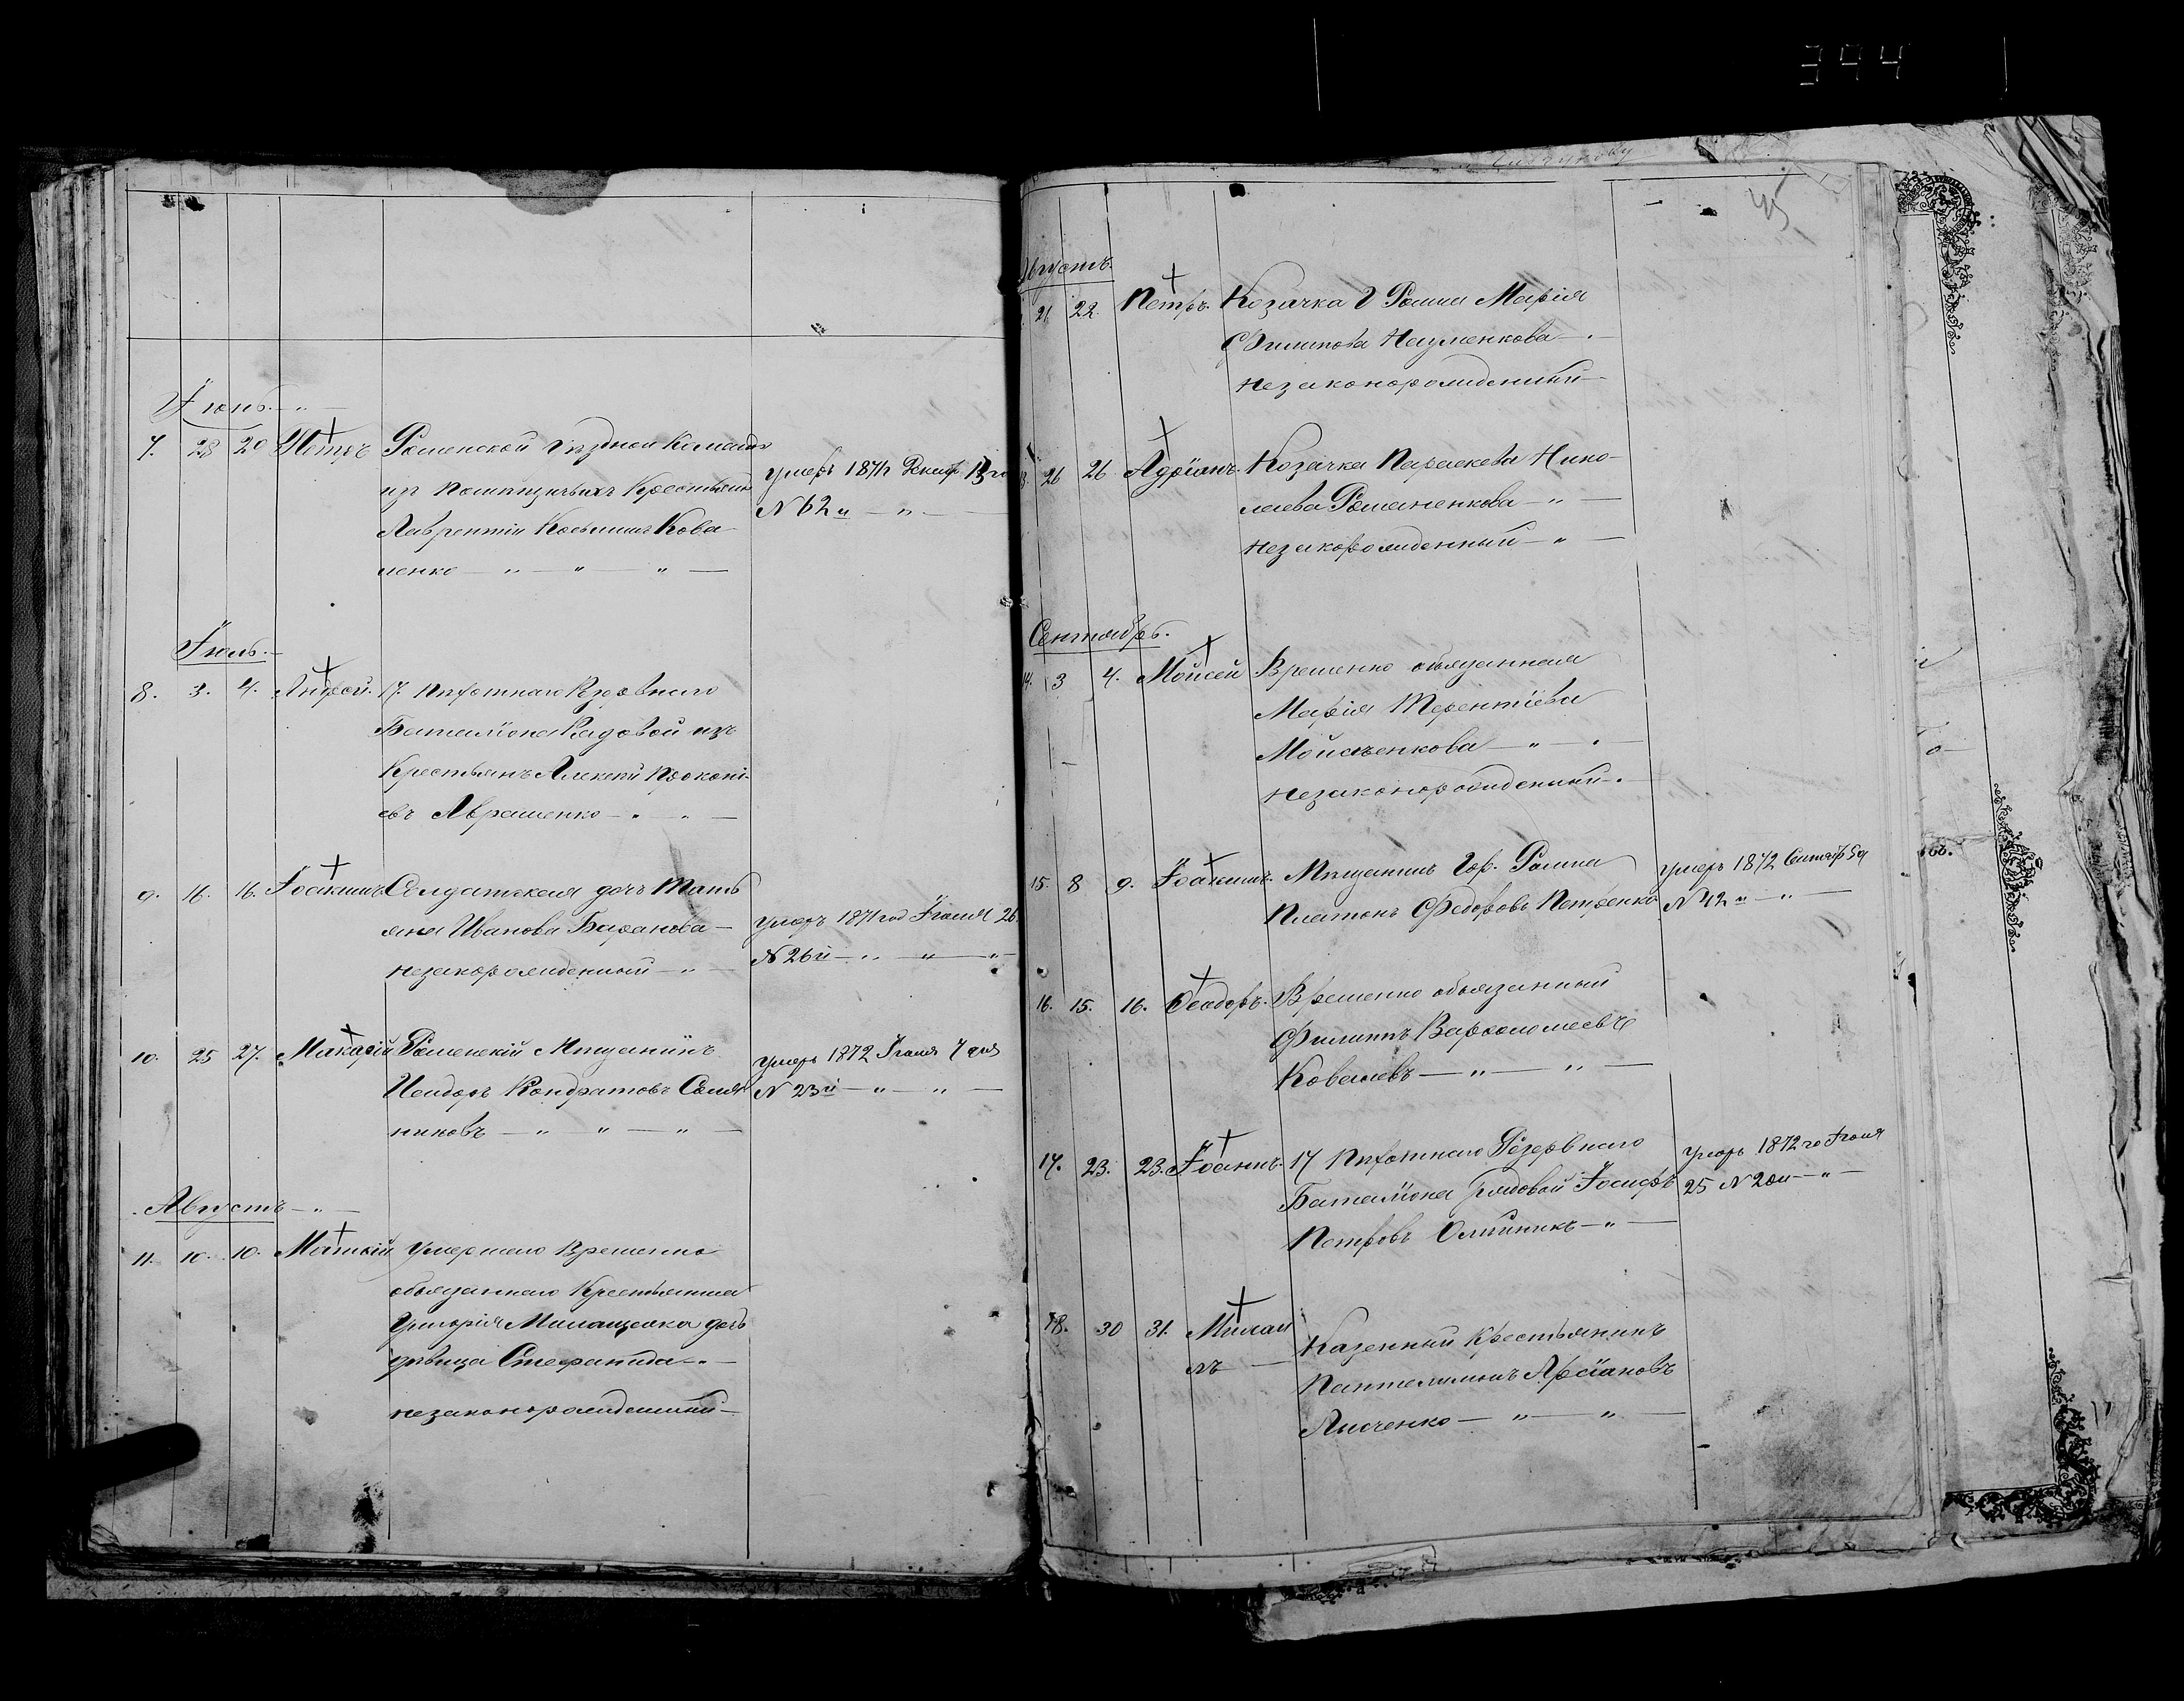 394
Іюнь
7. 28 20 Петръ Роменской Уѣздной Команды
изъ помѣщичьихъ Крестьянъ
Лаврентій Косьминъ Кова
ленко
умеръ 1871 Декаб. 13 го
N 62й
Іюль.
8. 3. 4. Андрей. 17. Пѣхотнаго Резервнаго
Баталіона Рядовой изъ
Крестьянъ Алексей Прокопі-
евъ Авраменко
9. 16. 16. Іоакимъ Солдатская дочь Тать
яна Иванова Баранова
незакорожденный
умеръ 1871 год Іюля 26
N 26й
10. 25 27. Макарій Роменскій Мѣщанинъ
Исидоръ Кондратовъ
никовъ
умеръ 1872 Іюля 7 дня
N 23й
Августъ
11. 10. 10. Матѳій Умершаго Временно
обязаннаго Крестьянина
Григорія дочь
дѣвица Стефанида
незаконорожденный
45
Августъ.
21 22. Петръ. Козачка Г Ромна Марія
Филипова Науменкова
незаконорожденный
26 26 Адріанъ. Козачка Параскева Нико-
лаева Романенкова
незакорожденный
Сентябрь.
14. 3 4. Мойсей Временно обязанная
Марія Терентіева
Мойсѣенкова
незаконорожденный
15. 8 9. Іоакимъ. Мѣщанинъ Гор. Ромна
Платонъ Федоровъ Петренко
умеръ 1872 Сентяб 5д
N 42й
16. 15. 16. Ѳеодоръ. Временно обязанный
Филиппъ Варѳоломеевъ
Ковалевъ
17. 23. 23. Іоаннъ. 17 Пѣхотнаго Резервнаго
Баталіона рядовой Іосифъ
Петровъ Олійникъ
умеръ 1872 го Іюля
25 N 20й
18. 30 31. Михаи
лъ
Казенный Крестьянинъ
Пантелимонъ
Лисченко